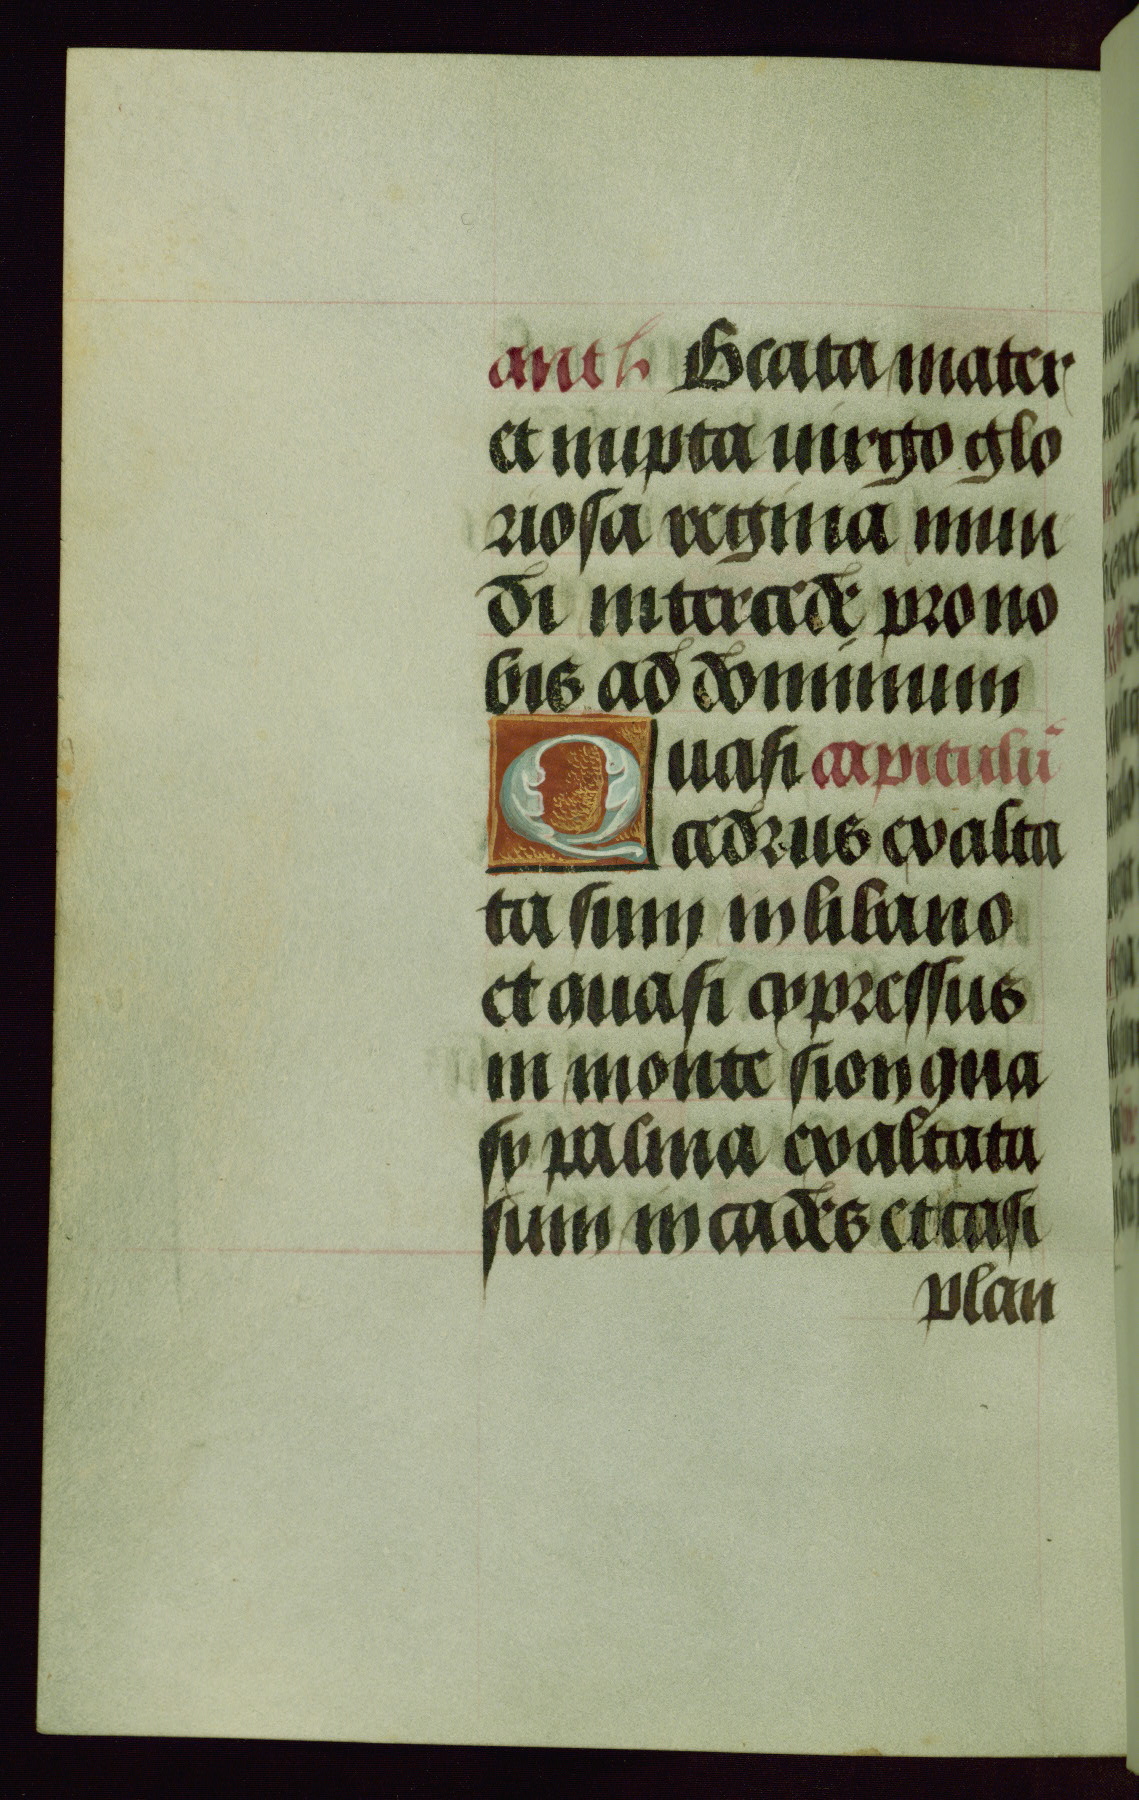 anth Beata mater
et nupta uirgo glo
riosa regina mun
di intercede pro no
bis ad dominum
Quasi capitulū
cedrus exalta
ta sum in libano
et quasi cypressus
in monte sion qua
sy palma exaltata
sum in cades et casi
plan